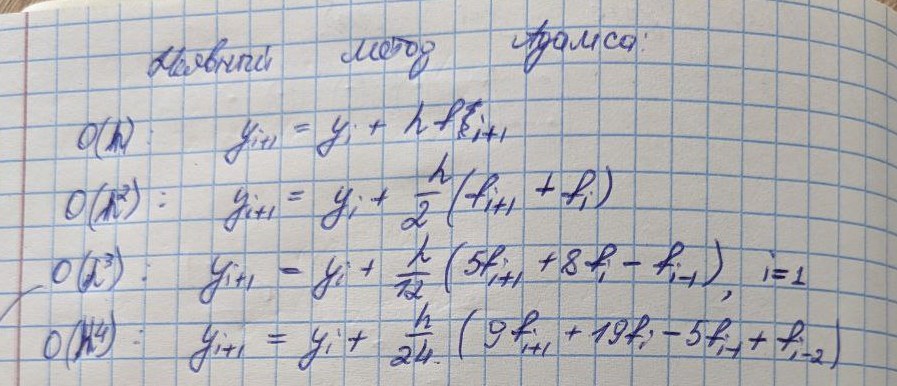 Неявный метод Адамса:
O(h): y_{i+1} = y_i + h f_{i+1}
O(h²): y_{i+1} = y_i + h/2 (f_{i+1} + f_i)
O(h³): y_{i+1} = y_i + h/12 (5f_{i+1} + 8f_i - f_{i-1}), i=1
O(h⁴): y_{i+1} = y_i + h/24 (9f_{i+1} + 19f_i - 5f_{i-1} + f_{i-2})